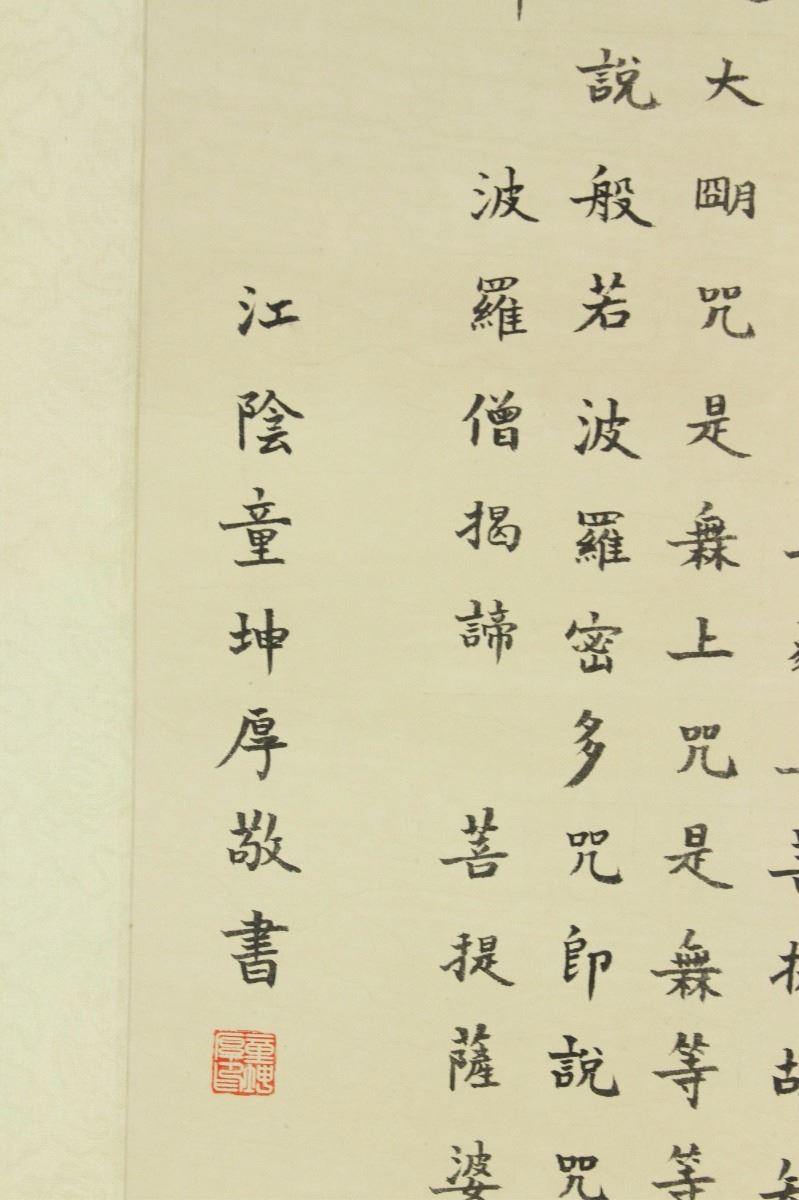 大朙咒是無上咒是無等等
說般若波羅密多咒即說咒
波羅僧揭諦 菩提薩婆
江陰童坤厚敬書
童坤厚印